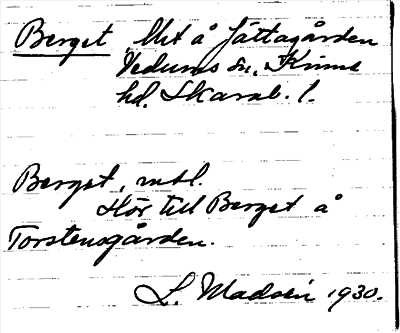 Berget, lht å Jättagården
Vedums sn. Kinne
hd. Skarab. l.
Berget, mtl.
Hör till Berget å
Torstensgården.
L. Madsén 1930.